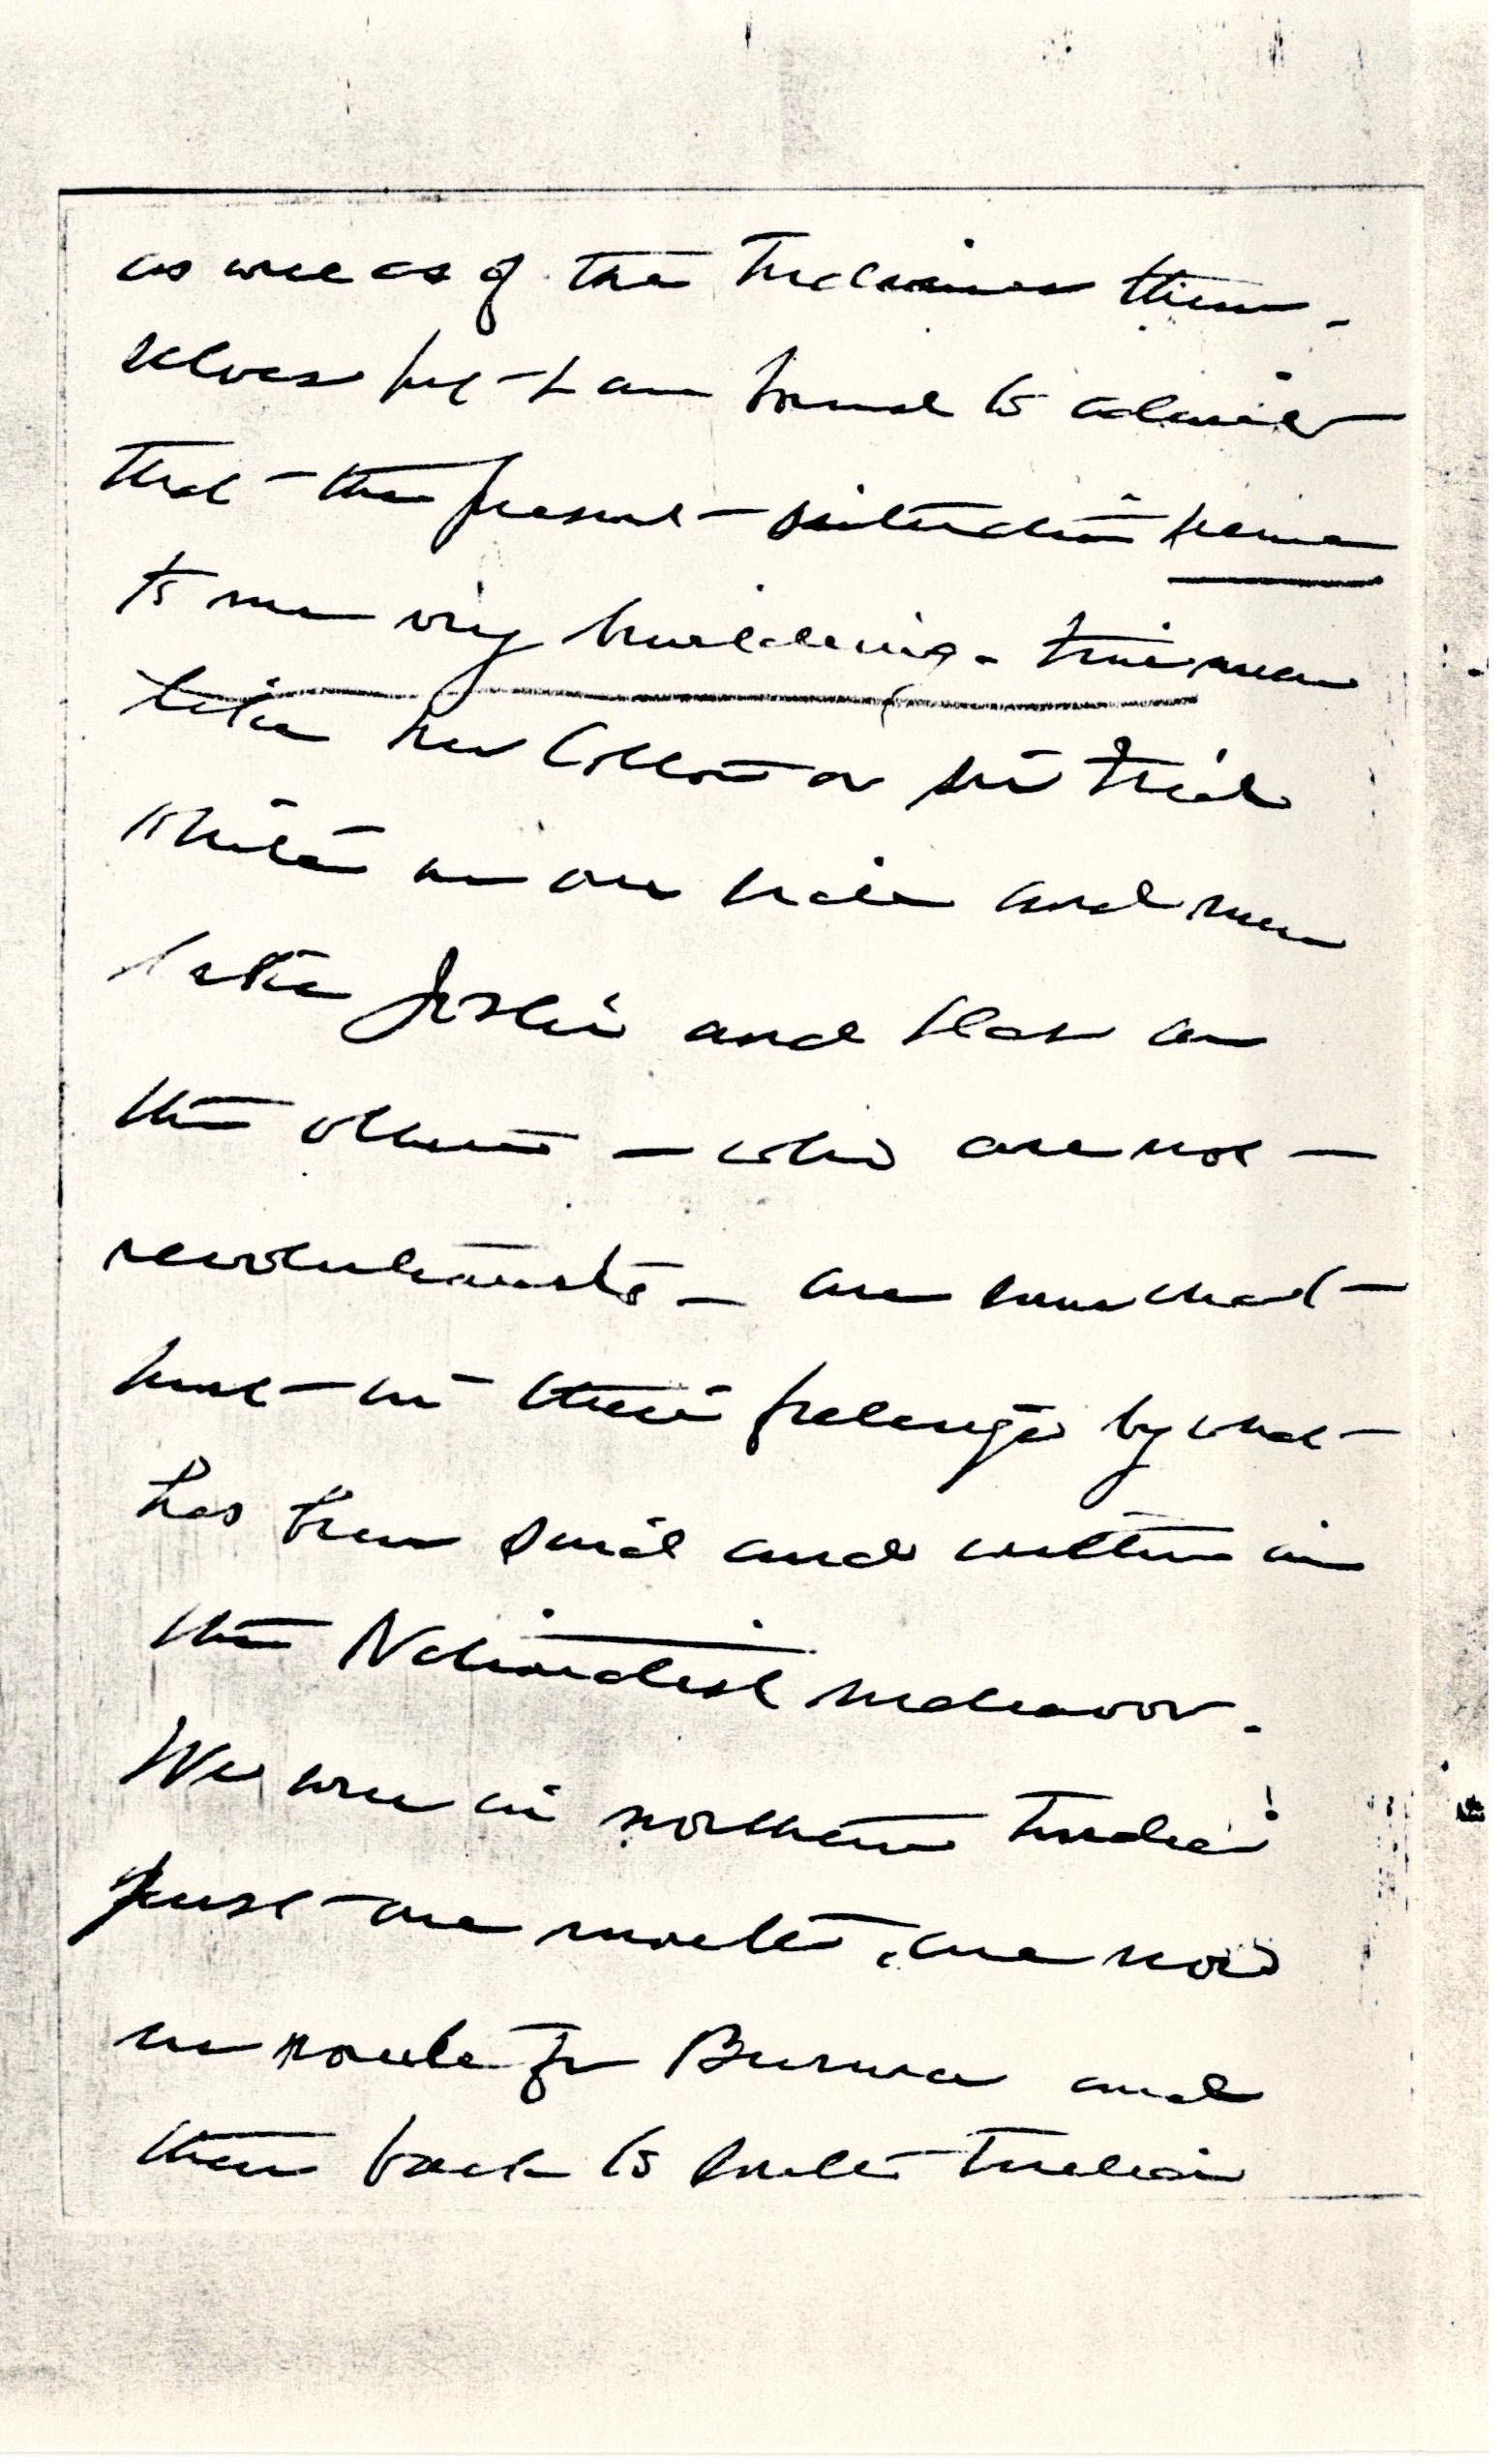 as well as of the Indians them-
selves but I am bound to admit
that the present situation seems
to me very bewildering. true men
like Sir Cotton or Sir
White on one side and men
like Joshi and Das on
the others – who are not
revolutionists – are somewhat
hurt in their feelings by what
has been said and written in
the Nationalist endeavor.
We were in northern India
just one month, are now
en route for Burma and
then back to South India